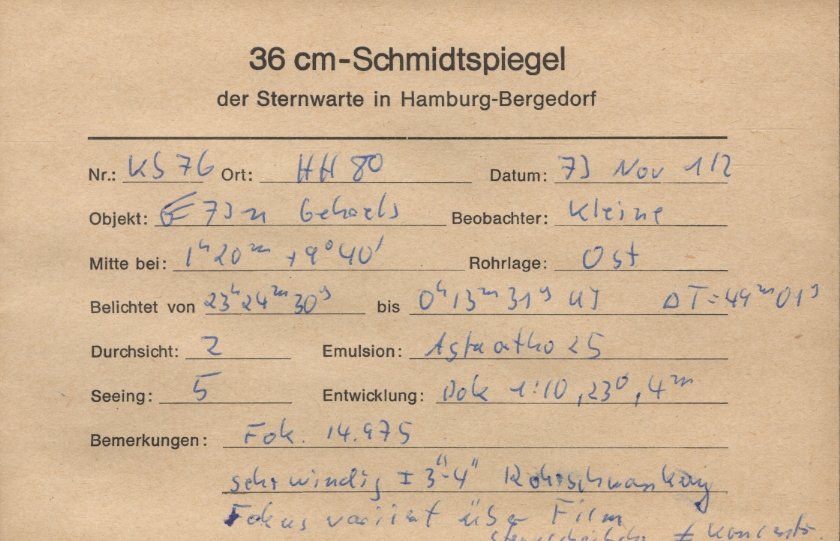 36 cm-Schmidtspiegel
der Sternwarte in Hamburg-Bergedorf
Nr.: KS 76 Ort: HH 80 Datum: 73 Nov 1/2
Objekt: 73 n Gehrels Beobachter: Kleine
Mitte bei: 1ʰ20ᵐ +9°40' Rohrlage: Ost
Belichtet von 23ʰ24ᵐ30ˢ bis 0ʰ13ᵐ31ˢ UT ΔT=49ᵐ01ˢ
Durchsicht: 2 Emulsion: 25
Seeing: 5 Entwicklung: Dok 1:10, 23°, 4ᵐ
Bemerkungen: Fok. 14.975
sehr windig ± 3"-4" Rohrschwankung
Fokus variiert über Film